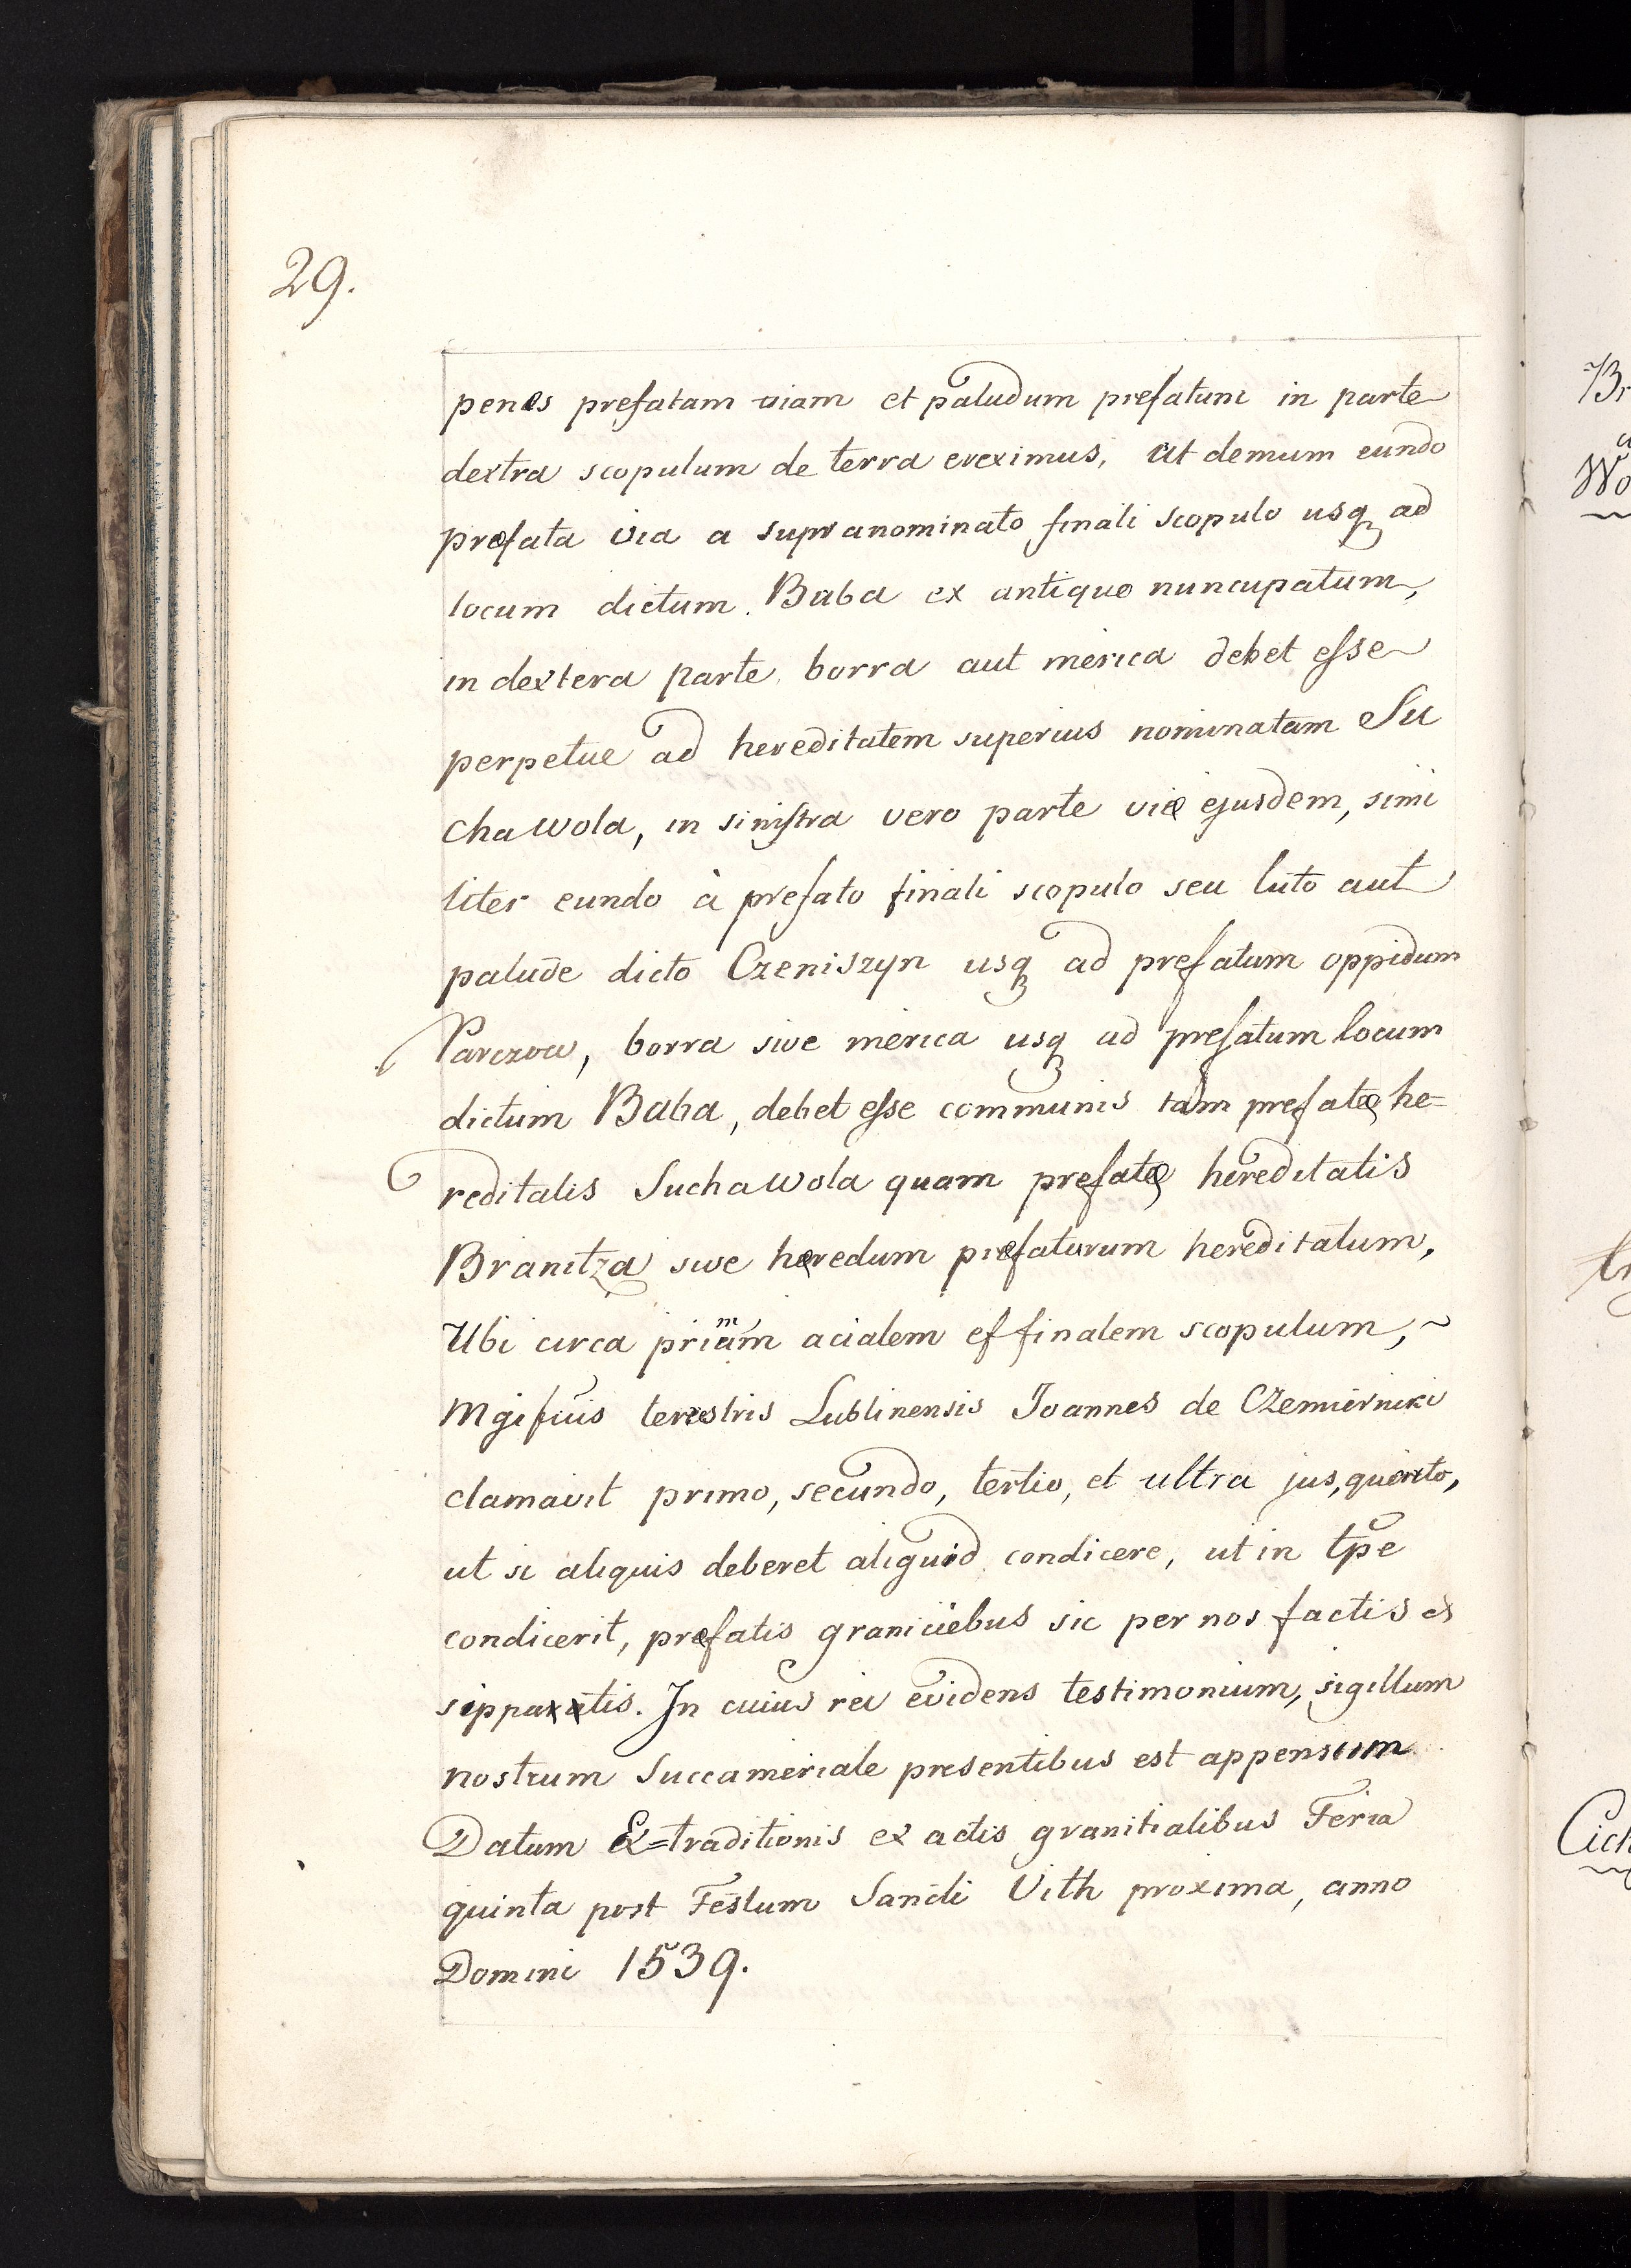 29.
penes prefatam viam et paludum prefatum in parte
dextra scopulum de terra ereximus, at demum eundo
præfata via a supranominato finali scopulo usq ad
locum dictum. Baba ex antiquo nuncupatum,
in dextera parte borra aut merica debet esse
perpetue ad hereditatem superius nominatam Su
chawola, in sinistra vero parte viæ ejusdem, simi
liter eundo à prefato finali scopulo seu luto aut
palude dicto Czeniszyn usq ad prefatum oppidum
Parczow, borra sive merica usq ad prefatum locum
dictum Baba, debet esse communis tam prefatæ he=
reditatis Suchawola quam prefatæ hereditatis
Branitza sive hæredum præfatarum hereditatum,
Ubi circa priãm acialem et finalem scopulum,
Mgifcuis terrestris Lublinensis Joannes de Czemierniki
clamavit primo, secundo, tertio, et ultra jus, quarto,
ut si aliquis deberet aliquid condicere, ut in tpe
condicerit, præfatis graniciebus sic per nos factis et
sippatis. In cuius rei evidens testimonium, sigillum
nostrum Succamerale presentibus est appensum
Datum Ex=traditionis ex actis granitialibus Feria
quinta post Festum Sancti Vith proxima, anno
Domini 1539.